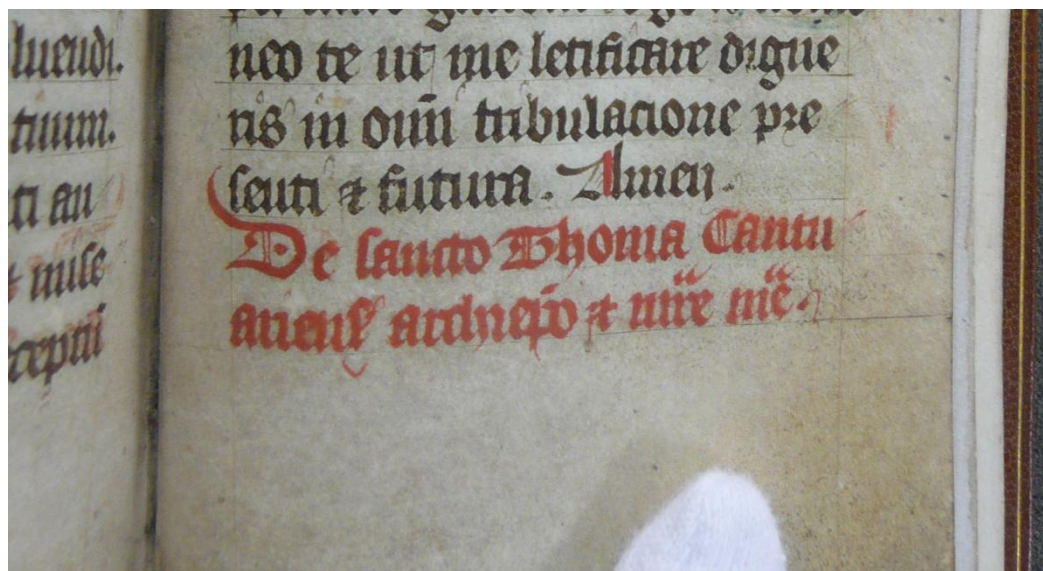 luendi.
tiuum.
ti au
mise
ceptū
neo te ut me letificare digne
ris in om̄i tribulacione pre
senti & futura. Amen.
De sancto Thoma Cantu
ariens̄ archiep̄o &